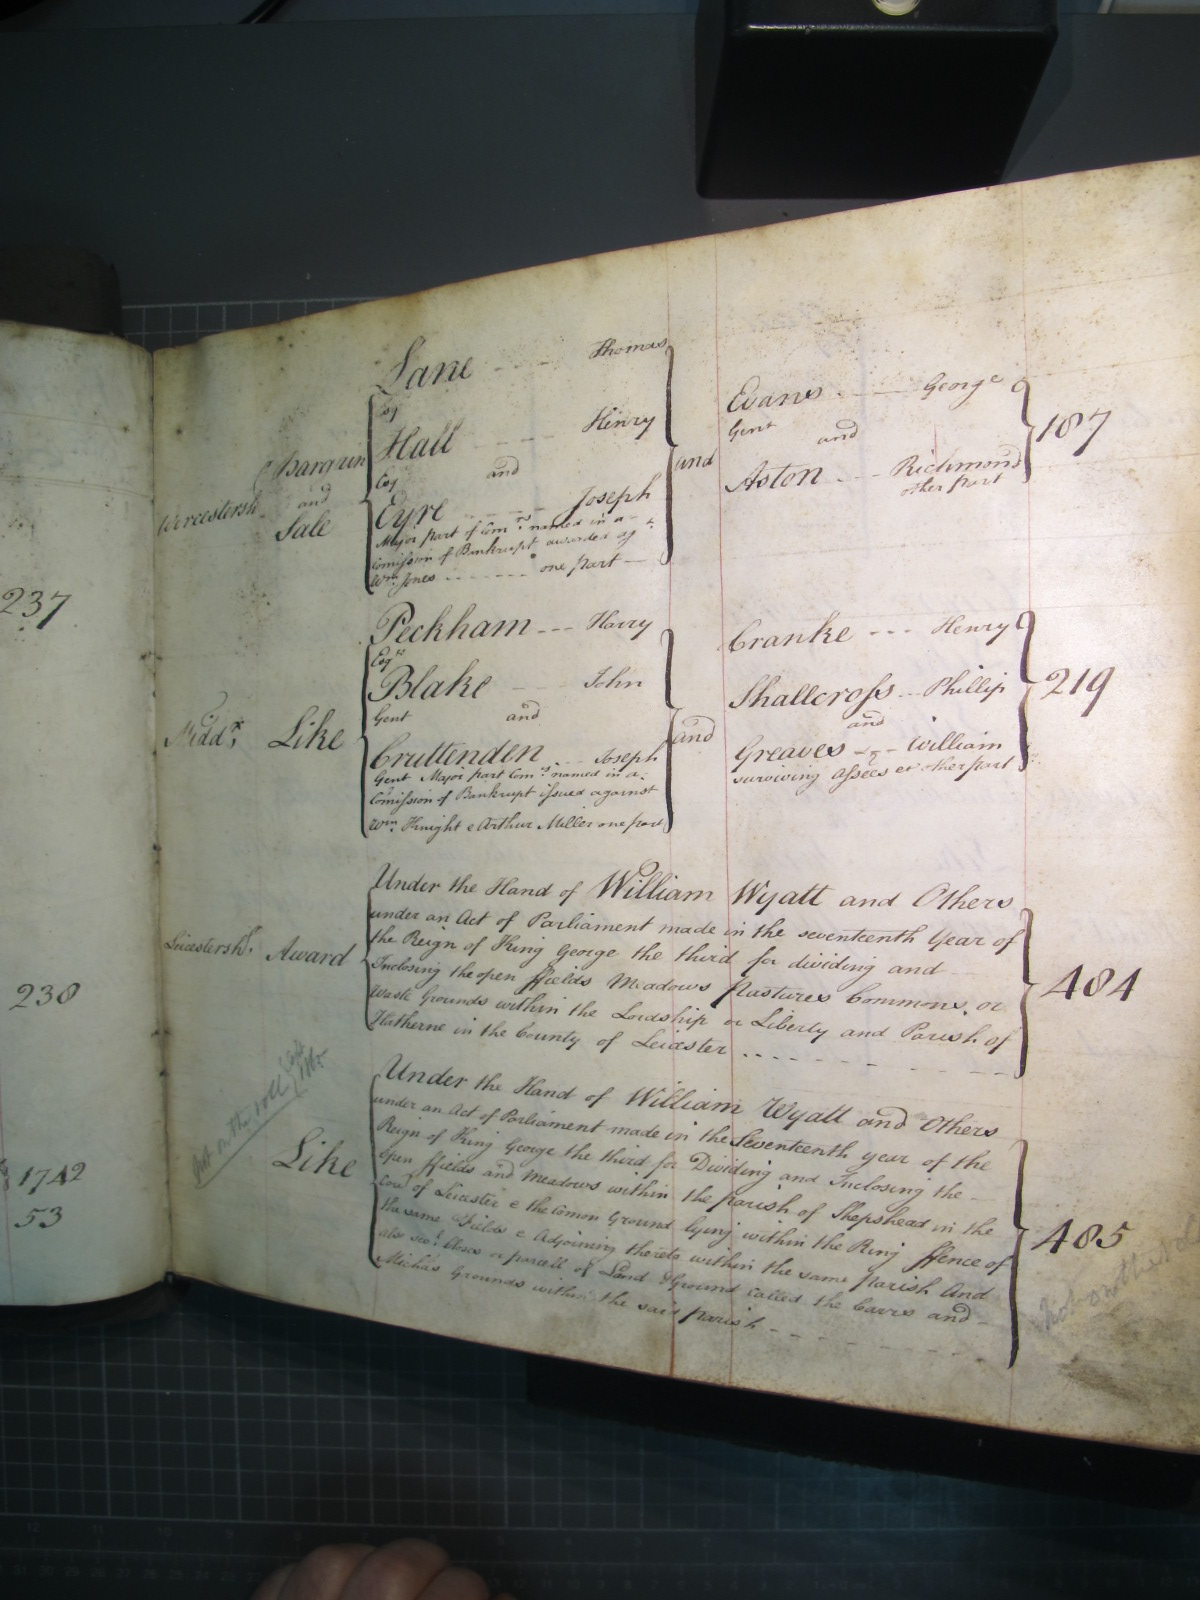 237
238
1742
53
Worcestersh.
Bargain
and
Sale
Lane --- Thomas
Esq
Hall ---- Henry
Esq and
Eyre ------ Joseph
Major part of Com.rs named in a
Comission of Bankrupt awarded ag.t
Wm. Jones ------- one part
and
Evans . ---- George
Gent and
Aston --- Richmond
other part
187
Midd.x
Like
Peckham --- Harry
Esq.r
Blake --- John
Gent and
Cruttenden --- Joseph
Gent Major part Com.rs named in a
Comission of Bankrupt issued against
Wm. Knight & Arthur Miller one part
and
Cranke --- Henry
Shallcross -- Phillip
and
Greaves --- William
surviving Assees et other part
219
Leicestersh.
Award
Under the Hand of William Wyatt and Others
under an Act of Parliament made in the seventeenth Year of
the Reign of King George the third for dividing and
Inclosing the open ffields Meadows Pastures Commons, or
Waste Grounds within the Lordship or Liberty and Parish of
Hatherne in the County of Leicester
484
Like
not on the roll
Under the Hand of William Wyatt and Others
under an Act of Parliament made in the Seventeenth year of the
Reign of King George the third for Dividing and Inclosing the
open ffields and Meadows within the parish of Shepshead in the
Co.y of Leicester & the Comon Ground lying within the Ring ffence of
the same Fields & Adjoining thereto within the same parish And
also sev.l Closes or parcell of Land & Ground called the Carrs and
Grounds within the said parish
485
Not on the